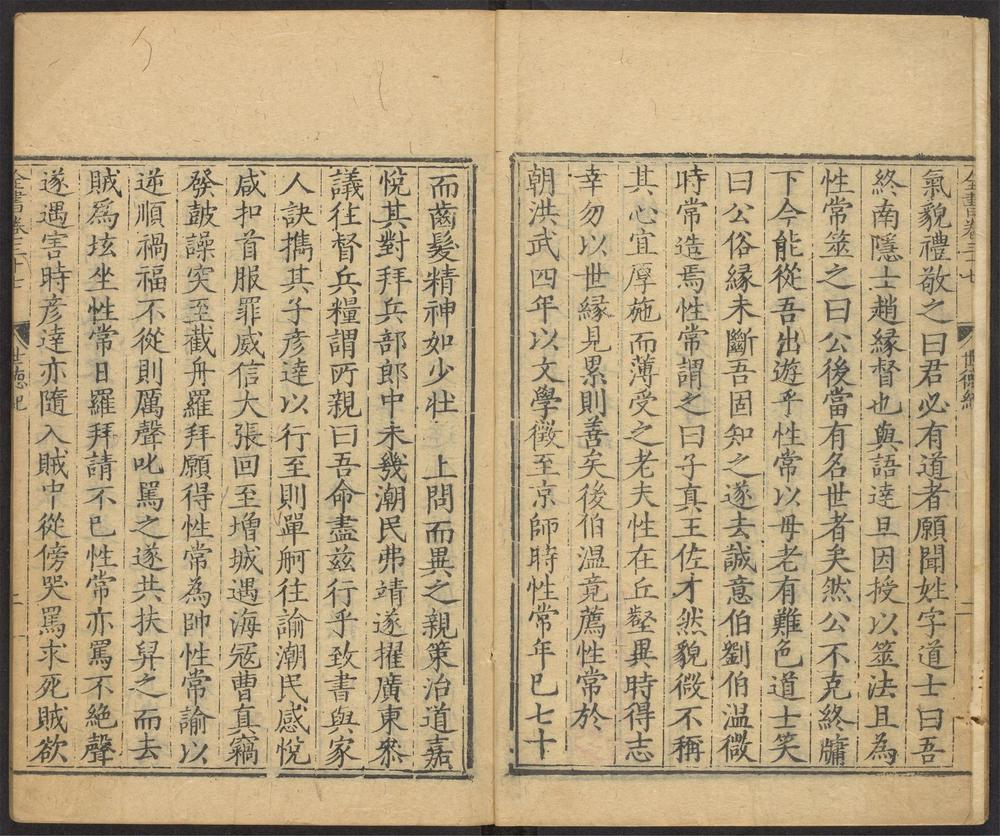 全書卷三十七 世德紀 二
氣貌禮敬之曰君必有道者願聞姓字道士曰吾
終南隱士趙緣督也與語達旦因授以筮法且為
性常筮之曰公後當有名世者矣然公不克終牖
下今能從吾出遊乎性常以母老有難色道士笑
曰公俗緣未斷吾固知之遂去誠意伯劉伯溫微
時常造焉性常謂之曰子真王佐才然貌微不稱
其心宜厚施而薄受之老夫性在丘壑異時得志
幸勿以世緣見累則善矣後伯溫竟薦性常於
朝洪武四年以文學徵至京師時性常年已七十
而齒髮精神如少壯 上問而異之親策治道嘉
悅其對拜兵部郎中未幾潮民弗靖遂擢廣東叅
議往督兵糧謂所親曰吾命盡兹行乎致書與家
人訣擕其子彥達以行至則單舸往諭潮民感悅
咸扣首服罪威信大張回至增城遇海冦曹真竊
發鼓譟突至截舟羅拜願得性常為帥性常諭以
逆順禍福不從則厲聲叱罵之遂共扶舁之而去
賊為壇坐性常日羅拜請不已性常亦罵不絕聲
遂遇害時彥達亦隨入賊中從傍哭罵求死賊欲
全書卷三十七 世德紀 二